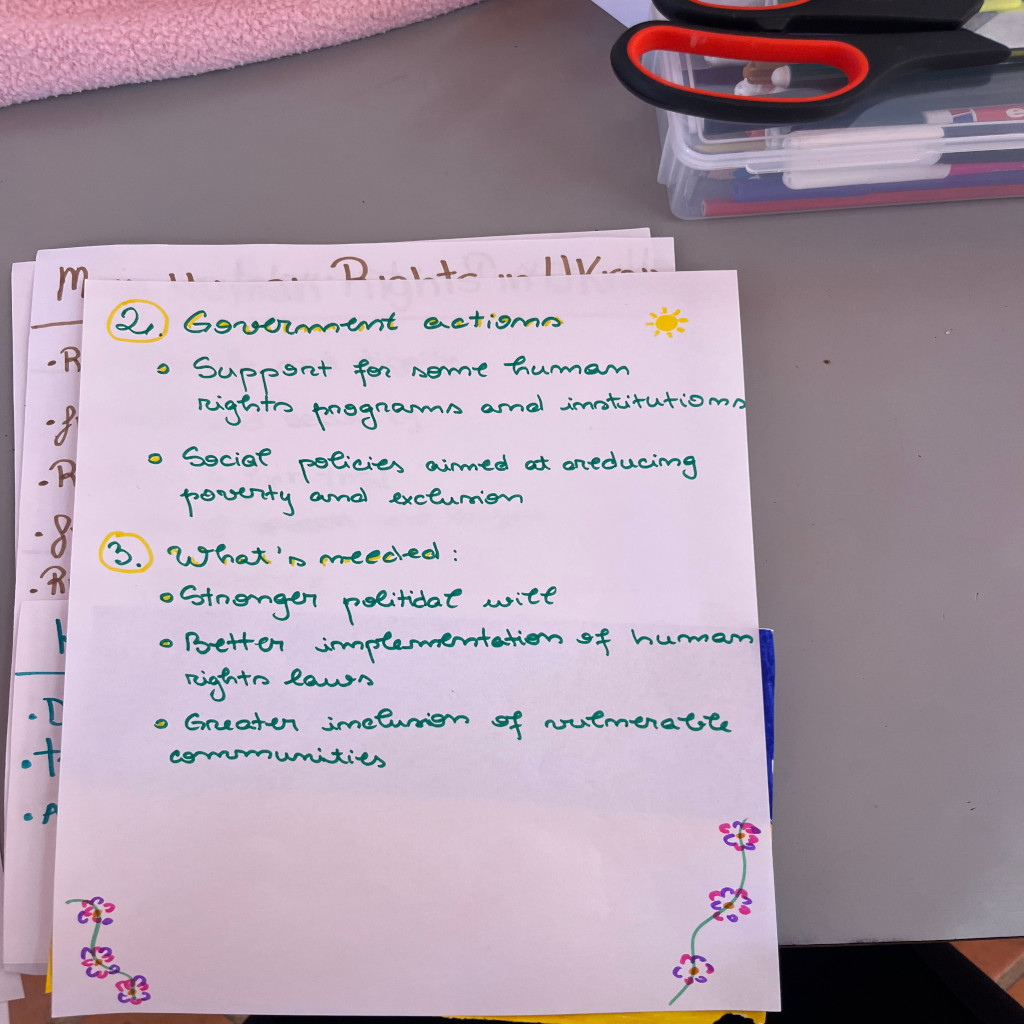 Rights in UKrain
2. Goverment actions
• Support for some human
rights programs and institutions
• Social policies aimed at reducing
poverty and exclusion
3. What's needed:
• Stronger politidal will
• Better implementation of human
rights laws
• Greater inclusion of vulnerable
communities